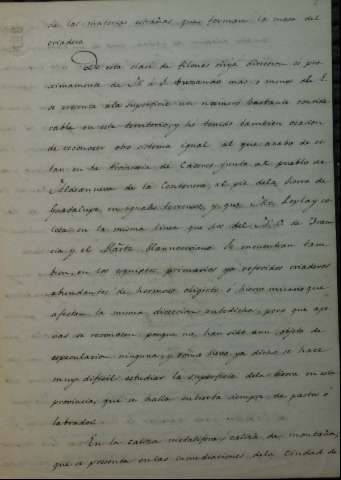 de las materias estrañas que forman la masa del
criadero.
De esta clase de filones cuya direccion es pro
ximamente de N. á S. buzando mas ó menos al E.
se presenta á la superficie un numero bastante conside
rable en este territorio, y he tenido tambien ocasion
de reconocer otro sistema igual al que acabo de ci
tar en la Provincia de Caceres junto al pueblo de
Aldeanueva de la Centenera, al pie de la Sierra de
Guadalupe, en iguales terrenos, ya que Mr. Leplay co
loca en la misma linea que los del N. O. de Fran
cia y el Hartz. Mannesciano Se encuentran tam
bien en los esquistos primarios ya referidos criaderos
abundantes de hermoso oligisto ó hierro micaceo que
afectan la misma direccion antedicha, pero que ape
nas se reconocen porque no han sido aun objeto de
especulacion ninguna, y como llevo ya dicho se hace
muy dificil estudiar la superficie de la tierra en esta
provincia, que se halla cubierta siempre de pastos ó
labrados.
En la caliza metalifera ó caliza de montaña,
que se presenta en las inmediaciones de la Ciudad de